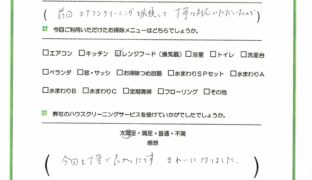 (前回 エアコンクリーニング 依頼して 丁寧な対応いただいたので)
今回ご利用いただいたお掃除メニューはどちらでしょうか。
□エアコン □キッチン ☑レンジフード(換気扇) □浴室 □トイレ □洗面台
□ベランダ □窓・サッシ □お掃除つめ放題 □水まわりSPセット □水まわりA
□水まわりB □水まわりC □定期清掃 □フローリング □その他
弊社のハウスクリーニングサービスを受けていかがでしたでしょうか。
大満足・満足・普通・不満
感想
(今回も丁寧で良かったです。きれいになりました。)